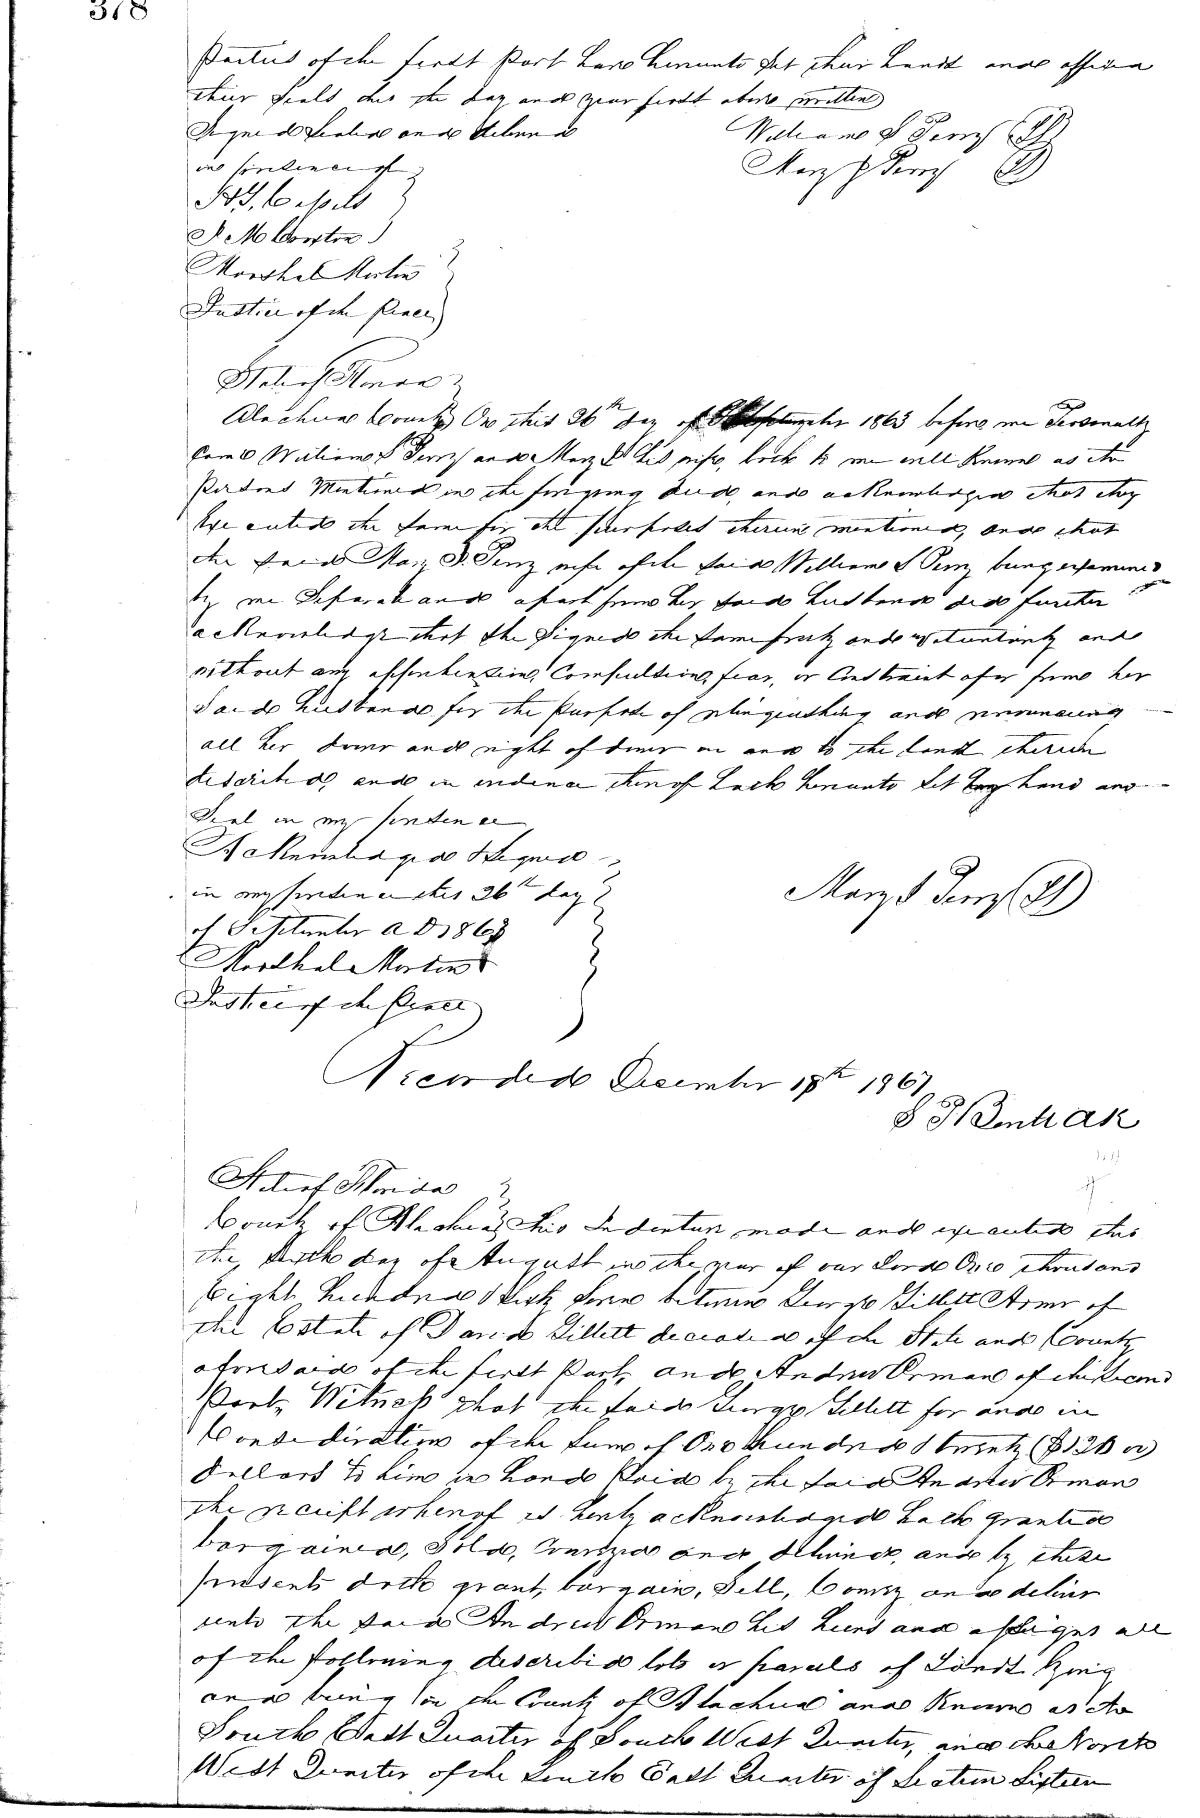 378
Parties of the first Part have hereunto set their hands and affixed
their seals this the day and year first above written
Signed Sealed and delivered William S Perry (LS)
in presence of Mary S Perry (LS)
Marshal Martin
Justice of the Peace
State of Florida
Alachua County On this 26th day of September 1863 before me Personally
Came William S Perry and Mary S his wife, both to me well Known as the
Persons Mentioned in the foregoing deed, and acknowledged that they
Executed the same for the purposes therein mentioned, and that
the said Mary S. Perry wife of the said William S Perry being examined
by me Separate and apart from her said husband did further
acknowledge that she Signed the same freely and voluntarily and
without any apprehension, Compulsion, fear, or Constraint of or from her
Said husband for the purpose of relinquishing and renouncing
all her dower and right of dower in and to the land therein
described, and in evidence thereof hath hereunto set her hand and
Seal in my presence
Acknowledged & Signed
in my presence this 26th day Mary S Perry (LS)
of September A D 1863
Marshal Martin
Justice of the Peace
Recorded December 18th 1867
State of Florida
County of Alachua This Indenture made and executed this
the Sixth day of August in the year of our Lord One thousand
Eight hundred & Sixty Seven between George Gillett Admr of
the Estate of David Gillett deceased of the State and County
aforesaid of the first Part, and Andrew Orman of the Second
Part, Witness that the said George Gillett for and in
Consideration of the sum of One hundred & twenty ($120 00)
dollars to him in hand Paid by the said Andrew Orman
the receipt whereof is herby acknowledged hath granted
bargained, Sold, Conveyed and delivered, and by these
presents doth grant, bargain, Sell, Convey and deliver
unto the said Andrew Orman his heirs and assigns all
of the following described lots or parcels of Land lying
and being in the County of Alachua and Known as the
South East Quarter of South West Quarter, and the North
West Quarter of the South East Quarter of Section Sixteen